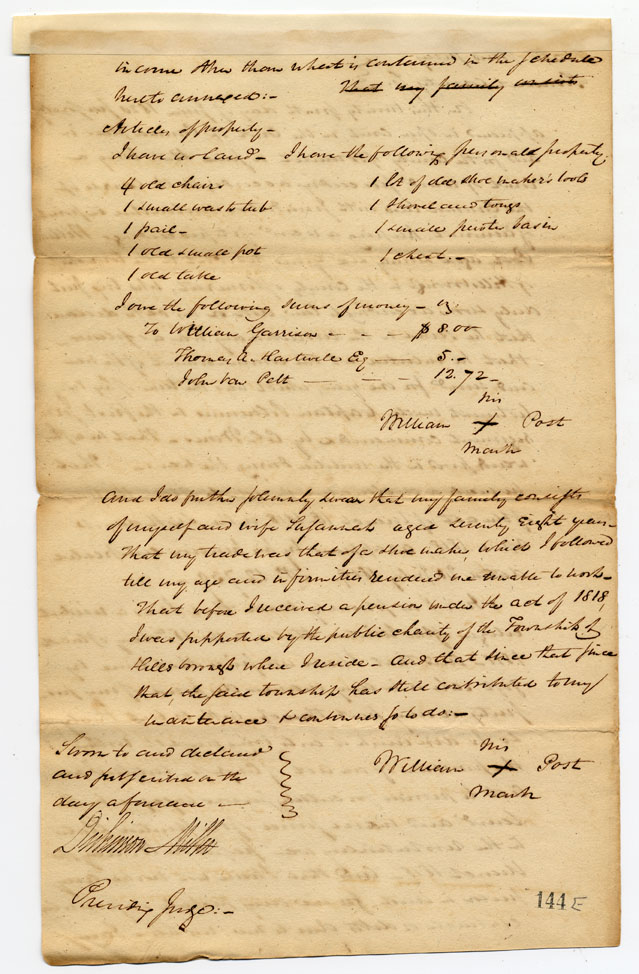 income other than what is contained in the schedule
hereto annexed:- That my family consists
Articles of property-
I have no land- I have the following personal property
4 old chairs 1 lot of old shoe maker's tools
1 small wash tub 1 shovel and tongs
1 pail- 1 small pewter basin
1 old small pot 1 chest.-
1 old table
I owe the following sums of money-
To William Garrison - - - $8.00
Thomas A. Hartwell Esq - 5.-
John Van Pelt - - - 12.72-
his
William X Post
mark
And I do further solemnly swear that my family consists
of myself and wife Susannah aged seventy Eight years-
That my trade was that of a shoe maker, which I followed
till my age and infirmities rendered me unable to work-
That before I received a pension under the act of 1818,
I was supported by the public charity of the Township of
Hillsborough where I reside- and that since that time
that, the said township has still contributed to my
maintenance & continues so to do:-
Sworn to and declared
and subscribed on the
day aforesaid -
his
William X Post
mark
Dickinson Miller
Presiding Judge:-
144 E